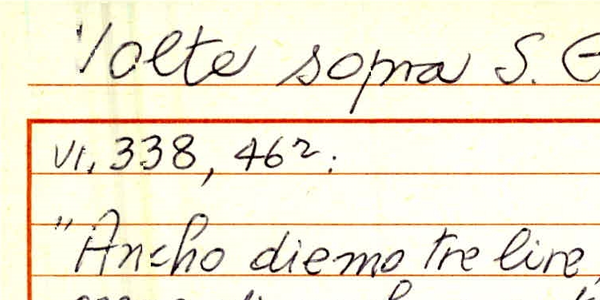 Volte sopra S.
VI, 338, 462:
"Ancho diemo tre lire,